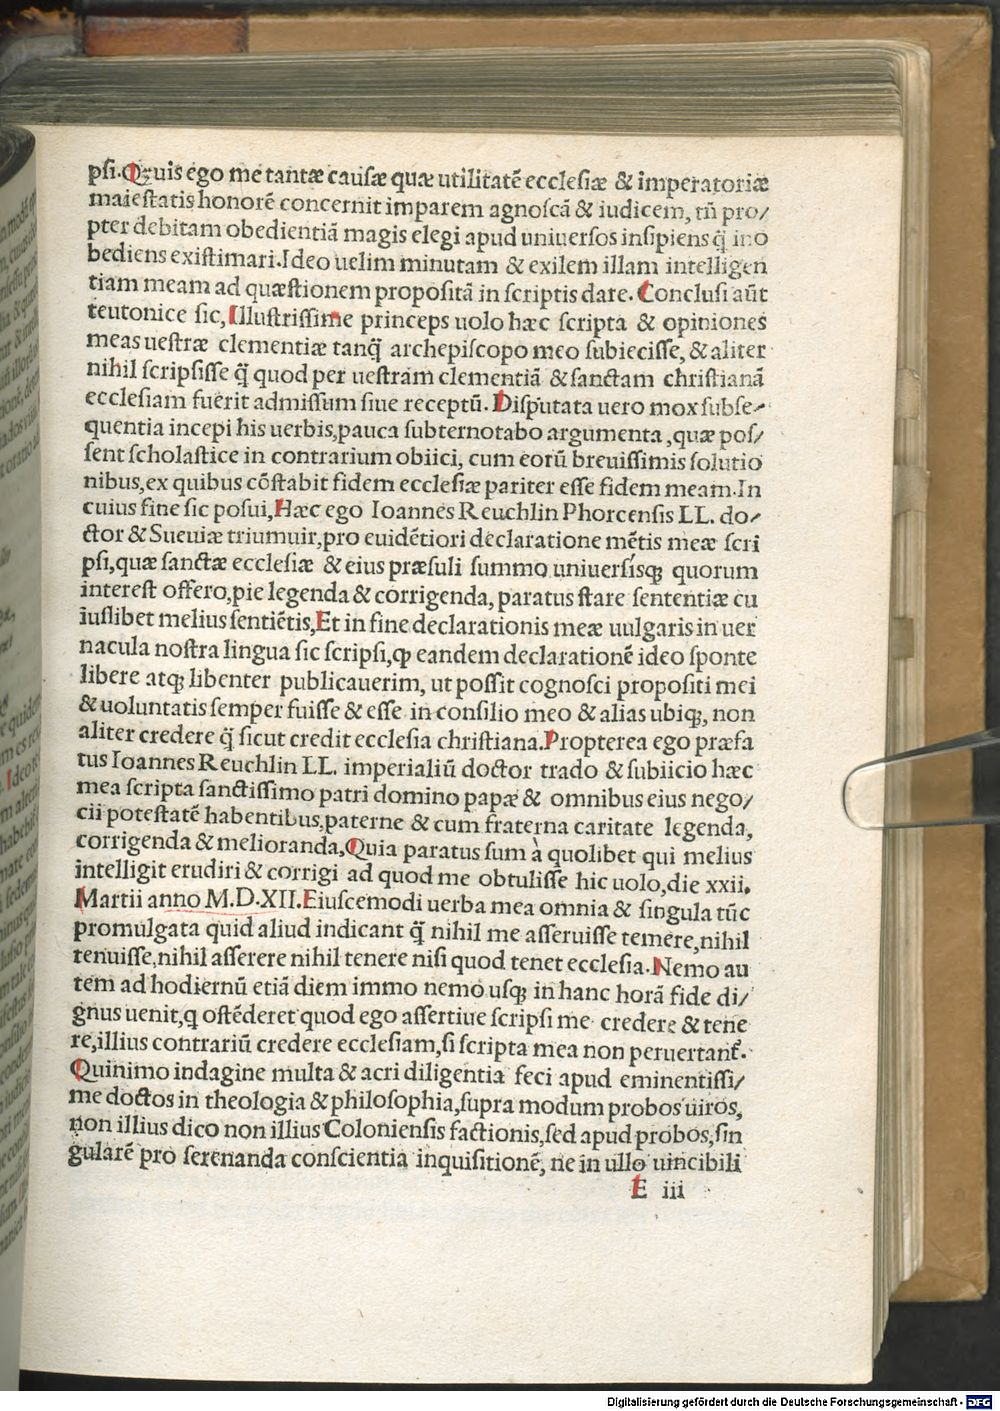 psi. Qꝫuis ego me tantæ causæ quæ utilitatē ecclesiæ & imperatoriæ
maiestatis honorē concernit imparem agnoscā & iudicem, tñ pro/
pter debitam obedientiā magis elegi apud uniuersos insipiens q̄ ino
bediens existimari. Ideo uelim minutam & exilem illam intelligen
tiam meam ad quæstionem propositā in scriptis dare. Conclusi aūt
teutonice sic, Illustrissime princeps uolo hæc scripta & opiniones
meas uestræ clementiæ tanq̄ archepiscopo meo subiecisse, & aliter
nihil scripsisse q̄ quod per uestram clementiā & sanctam christianā
ecclesiam fuerit admissum siue receptū. Disputata uero mox subse/
quentia incepi his uerbis, pauca subternotabo argumenta, quæ pos/
sent scholastice in contrarium obiici, cum eorū breuissimis solutio
nibus, ex quibus cōstabit fidem ecclesiæ pariter esse fidem meam. In
cuius fine sic posui, Hæc ego Ioannes Reuchlin Phorcensis LL. do/
ctor & Sueuiæ triumuir, pro euidētiori declaratione mētis meæ scri
psi, quæ sanctæ ecclesiæ & eius præsuli summo uniuersisqꝫ quorum
interest offero, pie legenda & corrigenda, paratus stare sententiæ cu
iuslibet melius sentiētis, Et in fine declarationis meæ uulgaris in uer
nacula nostra lingua sic scripsi, ꝙ eandem declarationē ideo sponte
libere atqꝫ libenter publicauerim, ut possit cognosci propositi mei
& uoluntatis semper fuisse & esse in consilio meo & alias ubiqꝫ, non
aliter credere q̄ sicut credit ecclesia christiana. Propterea ego præfa
tus Ioannes Reuchlin LL. imperialiū doctor trado & subiicio hæc
mea scripta sanctissimo patri domino papæ & omnibus eius nego/
cii potestatē habentibus, paterne & cum fraterna caritate legenda,
corrigenda & melioranda, Quia paratus sum à quolibet qui melius
intelligit erudiri & corrigi ad quod me obtulisse hic uolo, die xxii.
Martii anno M.D.XII. Eiuscemodi uerba mea omnia & singula tūc
promulgata quid aliud indicant q̄ nihil me asseruisse temere, nihil
tenuisse, nihil asserere nihil tenere nisi quod tenet ecclesia. Nemo au
tem ad hodiernū etiā diem immo nemo usqꝫ in hanc horā fide di/
gnus uenit, q ostēderet quod ego assertiue scripsi me credere & tene
re, illius contrariū credere ecclesiam, si scripta mea non peruertant̄.
Quinimo indagine multa & acri diligentia feci apud eminentissi/
me doctos in theologia & philosophia, supra modum probos uiros,
non illius dico non illius Coloniensis factionis, sed apud probos, sin
gularē pro serenanda conscientia inquisitionē, ne in ullo uincibili
E iii
Digitalisierung gefördert durch die Deutsche Forschungsgemeinschaft - DFG